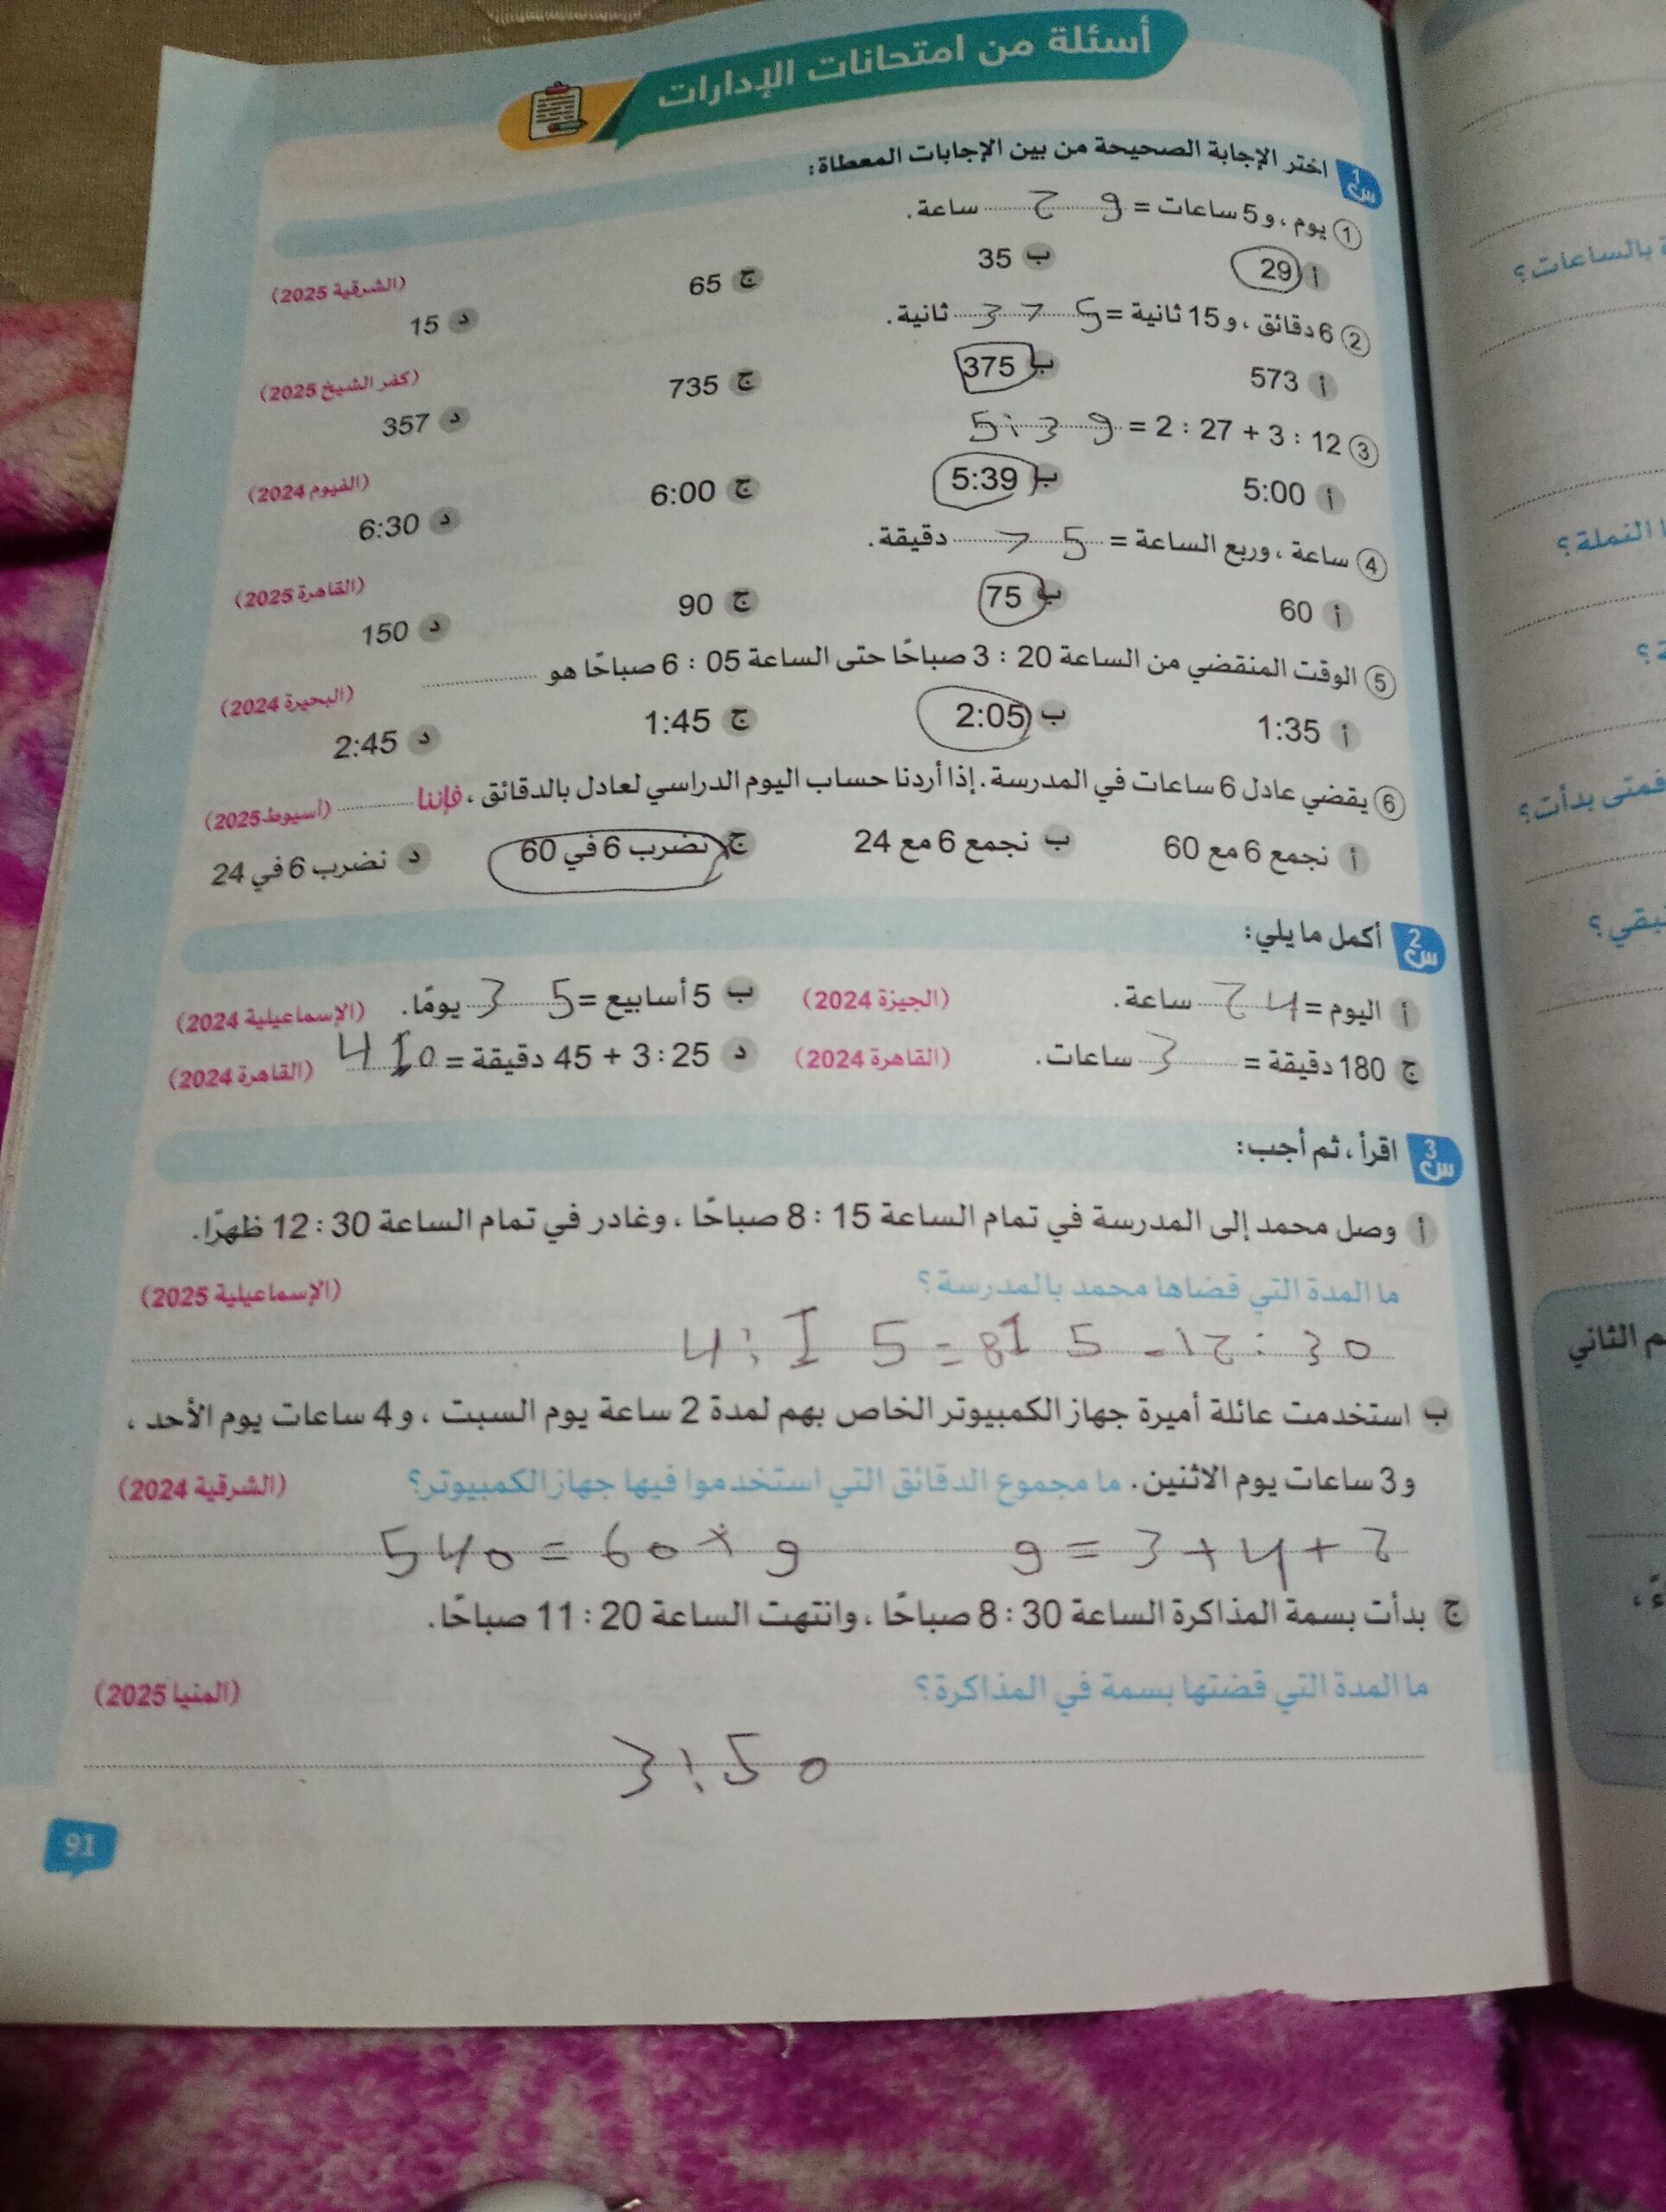 أسئلة من امتحانات الإدارات
س1 اختر الإجابة الصحيحة من بين الإجابات المعطاة:
1 يوم، و 5 ساعات = 29 ساعة.
أ 29 ب 35 ج 65 د 15 (الشرقية 2025)
2 6 دقائق، و 15 ثانية = 375 ثانية.
أ 573 ب 375 ج 735 د 357 (كفر الشيخ 2025)
3 2 : 27 + 3 : 12 = 5:39
أ 5:00 ب 5:39 ج 6:00 د 6:30 (الفيوم 2024)
4 ساعة، وربع الساعة = 75 دقيقة.
أ 60 ب 75 ج 90 د 150 (القاهرة 2025)
5 الوقت المنقضي من الساعة 20 : 3 صباحًا حتى الساعة 05 : 6 صباحًا هو
أ 1:35 ب 2:05 ج 1:45 د 2:45 (البحيرة 2024)
6 يقضي عادل 6 ساعات في المدرسة. إذا أردنا حساب اليوم الدراسي لعادل بالدقائق، فإننا (أسيوط 2025)
أ نجمع 6 مع 60 ب نجمع 6 مع 24 ج نضرب 6 في 60 د نضرب 6 في 24
س2 أكمل ما يلي:
أ اليوم = 24 ساعة. (الجيزة 2024) ب 5 أسابيع = 35 يومًا. (الإسماعيلية 2024)
ج 180 دقيقة = 3 ساعات. (القاهرة 2024) د 3:25 + 45 دقيقة = 410 (القاهرة 2024)
س3 اقرأ، ثم أجب:
أ وصل محمد إلى المدرسة في تمام الساعة 15 : 8 صباحًا، وغادر في تمام الساعة 30 : 12 ظهرًا.
ما المدة التي قضاها محمد بالمدرسة؟ (الإسماعيلية 2025)
4:15 = 815 - 12:30
ب استخدمت عائلة أميرة جهاز الكمبيوتر الخاص بهم لمدة 2 ساعة يوم السبت، و 4 ساعات يوم الأحد،
و 3 ساعات يوم الاثنين. ما مجموع الدقائق التي استخدموا فيها جهاز الكمبيوتر؟ (الشرقية 2024)
9 = 3 + 4 + 2 540 = 60 × 9
ج بدأت بسمة المذاكرة الساعة 30 : 8 صباحًا، وانتهت الساعة 20 : 11 صباحًا.
ما المدة التي قضتها بسمة في المذاكرة؟ (المنيا 2025)
3:50
91
بالساعات؟
النملة؟
فمتى بدأت؟
م الثاني